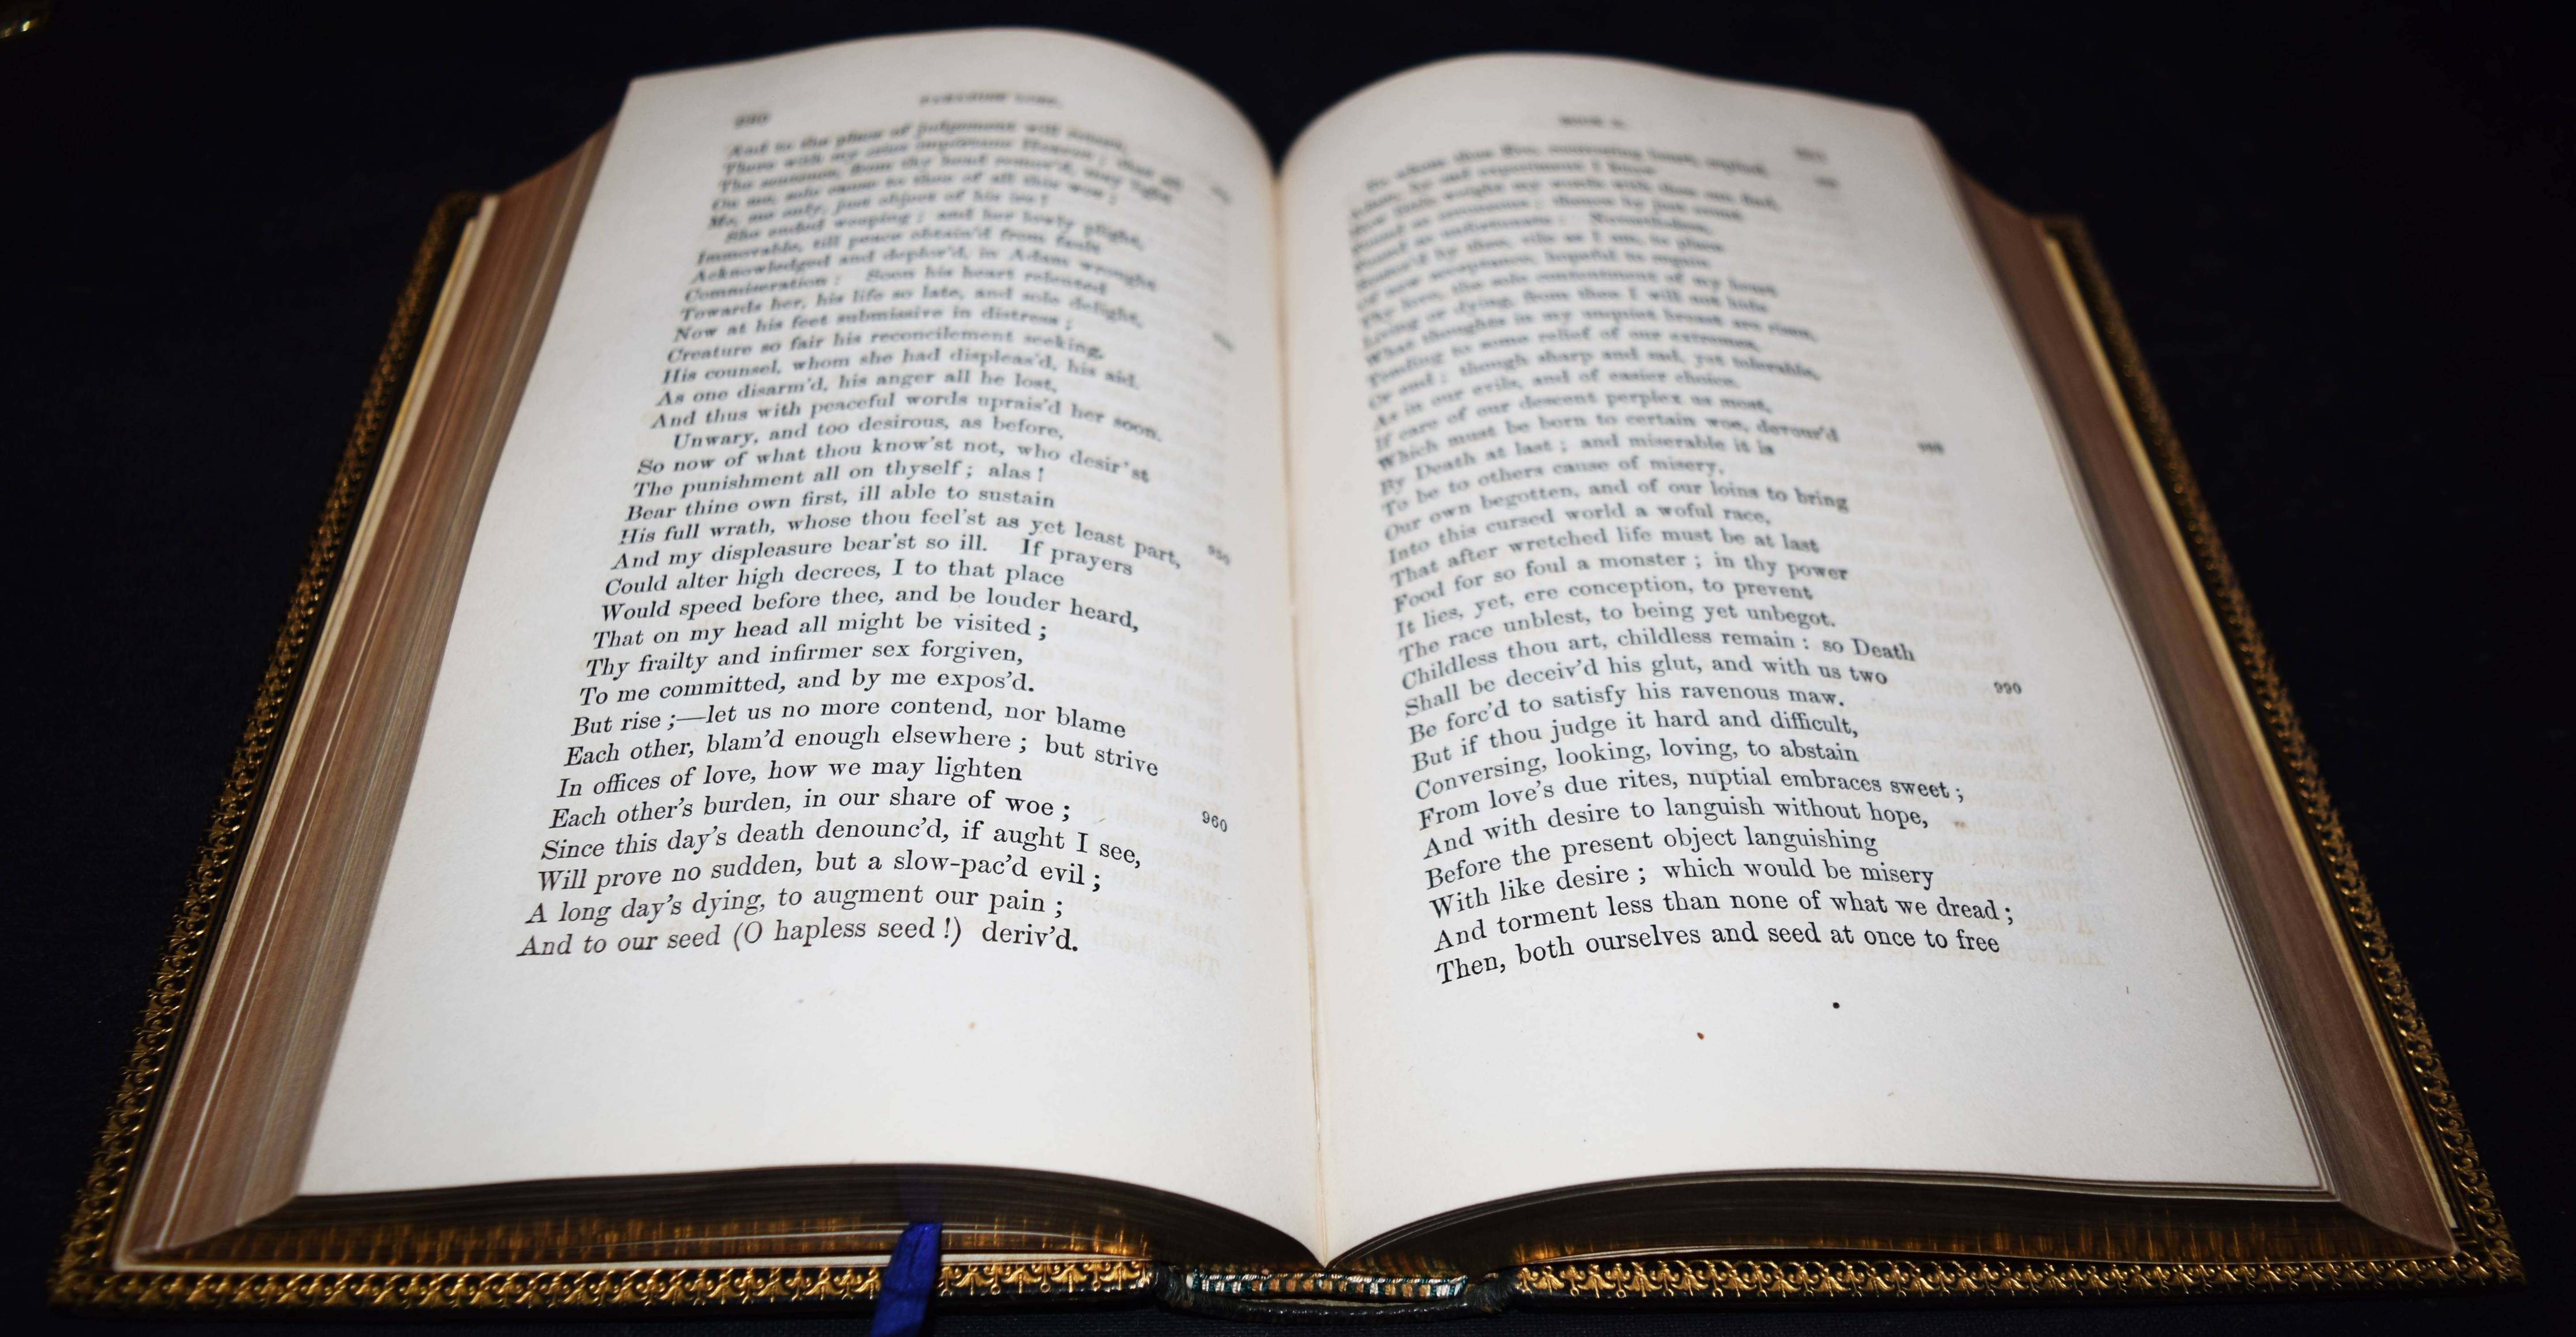 PARADISE LOST.
And to the place of judgement will return,
There with my cries importune Heaven; that all
The sentence, from thy head remov'd, may light
On me, sole cause to thee of all this woe;
Me, me only, just object of his ire!
She ended weeping; and her lowly plight,
Immovable, till peace obtain'd from fault
Acknowledged and deplor'd, in Adam wrought
Commiseration: Soon his heart relented
Towards her, his life so late, and sole delight,
Now at his feet submissive in distress;
Creature so fair his reconcilement seeking,
His counsel, whom she had displeas'd, his aid.
As one disarm'd, his anger all he lost,
And thus with peaceful words uprais'd her soon.
Unwary, and too desirous, as before,
So now of what thou know'st not, who desir'st
The punishment all on thyself; alas!
Bear thine own first, ill able to sustain
His full wrath, whose thou feel'st as yet least part, 950
And my displeasure bear'st so ill. If prayers
Could alter high decrees, I to that place
Would speed before thee, and be louder heard,
That on my head all might be visited;
Thy frailty and infirmer sex forgiven,
To me committed, and by me expos'd.
But rise;—let us no more contend, nor blame
Each other, blam'd enough elsewhere; but strive
In offices of love, how we may lighten
Each other's burden, in our share of woe; 960
Since this day's death denounc'd, if aught I see,
Will prove no sudden, but a slow-pac'd evil;
A long day's dying, to augment our pain;
And to our seed (O hapless seed!) deriv'd.
BOOK X.
To whom thus Eve, recovering heart, replied.
Adam, by sad experiment I know
How little weight my words with thee can find,
Found so erroneous; thence by just event
Found so unfortunate: Nevertheless,
Restor'd by thee, vile as I am, to place
Of new acceptance, hopeful to regain
Thy love, the sole contentment of my heart
Living or dying, from thee I will not hide
What thoughts in my unquiet breast are risen,
Tending to some relief of our extremes,
Or end; though sharp and sad, yet tolerable,
As in our evils, and of easier choice.
If care of our descent perplex us most,
Which must be born to certain woe, devour'd 980
By Death at last; and miserable it is
To be to others cause of misery,
Our own begotten, and of our loins to bring
Into this cursed world a woful race,
That after wretched life must be at last
Food for so foul a monster; in thy power
It lies, yet, ere conception, to prevent
The race unblest, to being yet unbegot.
Childless thou art, childless remain: so Death
Shall be deceiv'd his glut, and with us two 990
Be forc'd to satisfy his ravenous maw.
But if thou judge it hard and difficult,
Conversing, looking, loving, to abstain
From love's due rites, nuptial embraces sweet;
And with desire to languish without hope,
Before the present object languishing
With like desire; which would be misery
And torment less than none of what we dread;
Then, both ourselves and seed at once to free